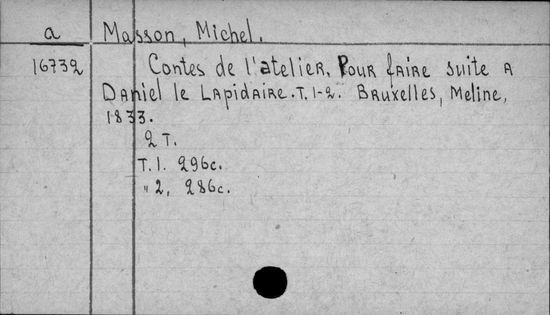 a Masson, Michel.
16732 Contes de l'atelier. Pour faire suite a
Daniel le Lapidaire. T. 1-2. Bruxelles, Meline,
1833.
2 T.
T. 1. 296c.
" 2, 286c.